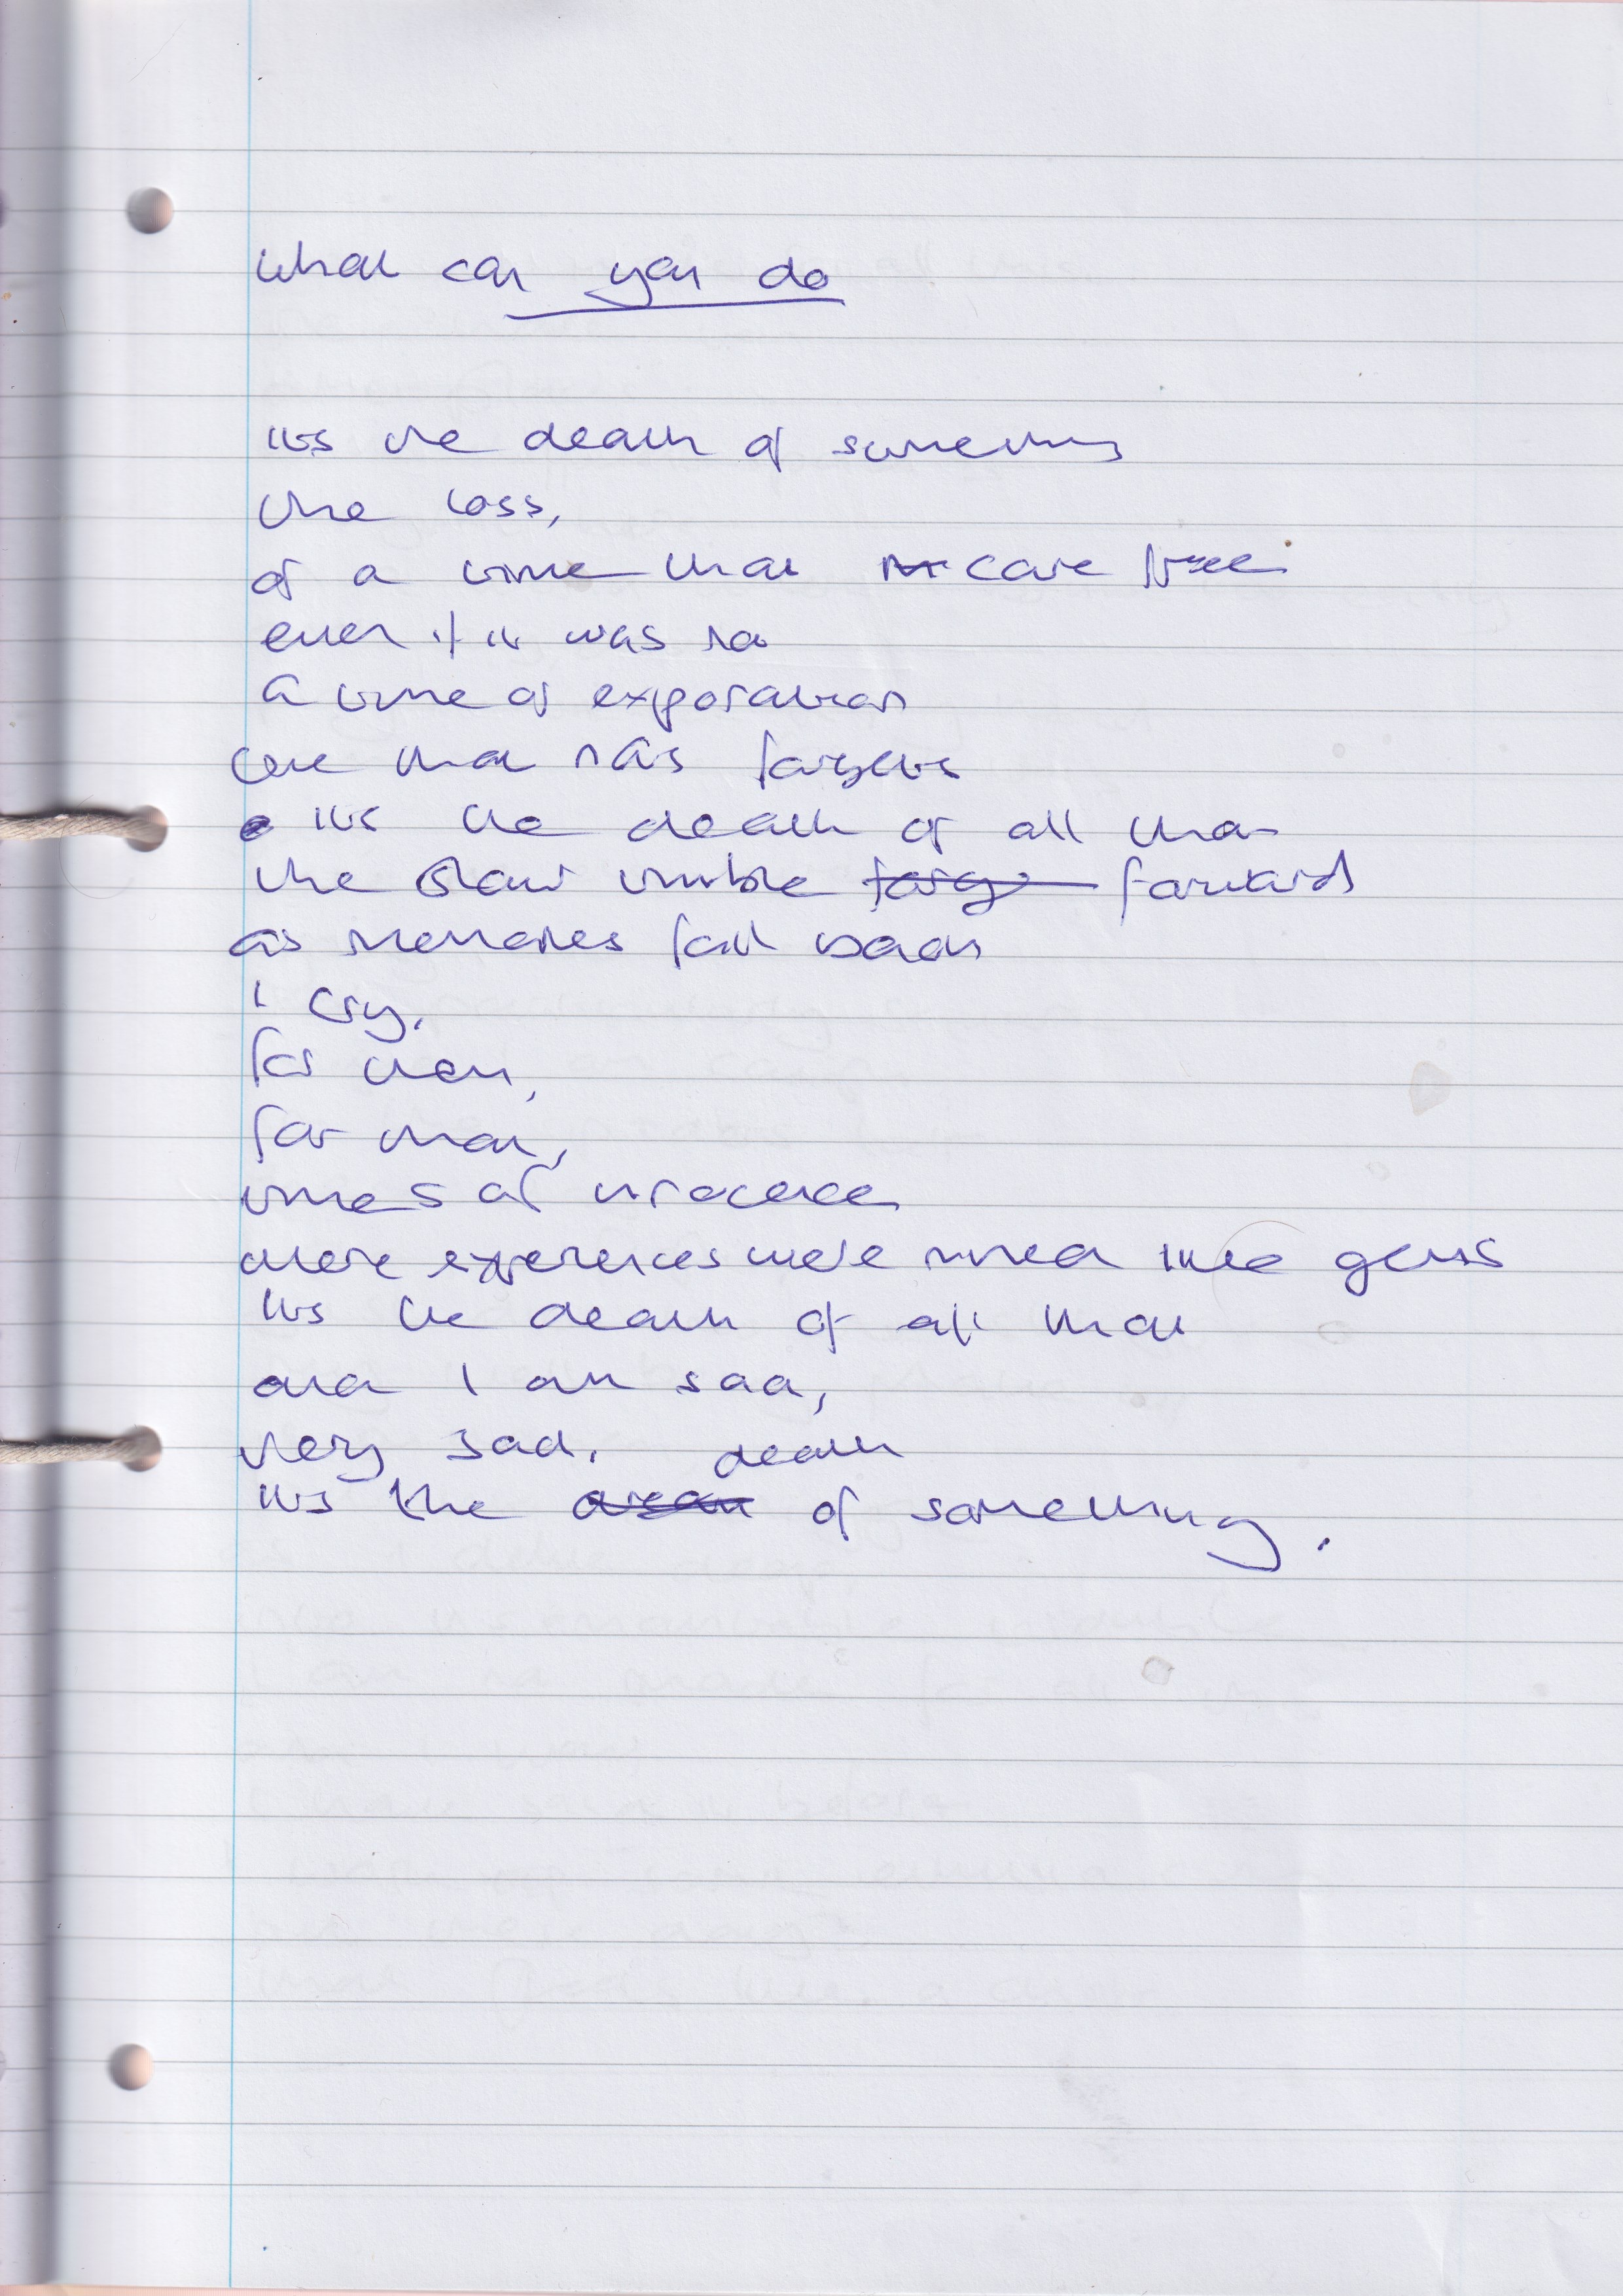 What can you do
its the death of something
the loss,
of a time that care free
even if it was no
a time of exploration
care that has forgets
its the death of all that
the slow tumble forward
as memories fall back
I cry,
for then,
for that,
times of innocence
where experiences were mined like gems
Its the death of all that
and I am sad,
very sad.
death
its the of something.